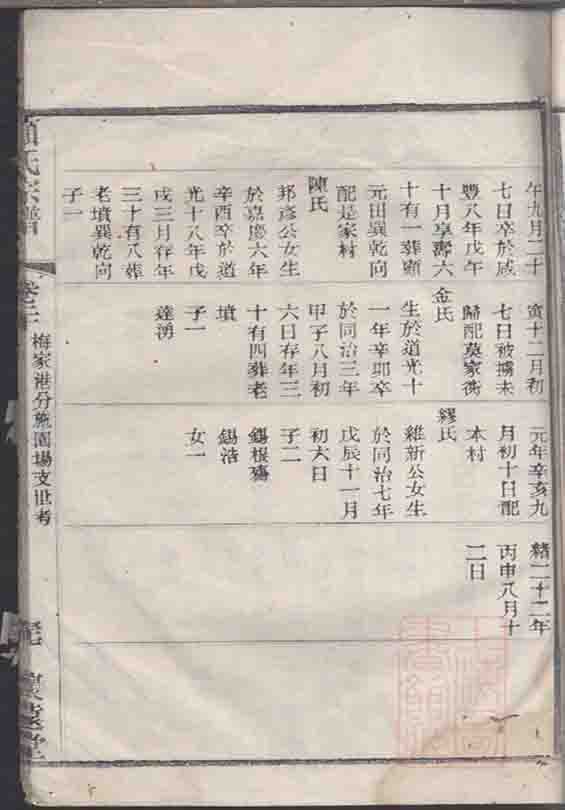 午九月二十
七日卒於咸
豐八年戊午
十月享壽六
十有一葬顧
元田巽乾向
配是家村
陳氏
邦彥公女生
於嘉慶六年
辛酉卒於道
光十八年戊
戌三月存年
三十有八葬
老墳巽乾向
子一
寅十二月初
七日被擄未
歸配莫家衖
金氏
生於道光十
一年辛卯卒
於同治三年
甲子八月初
六日存年三
十有四葬老
墳
子一
達湧
元年辛亥九
月初十日配
本村
繆氏
維新公女生
於同治七年
戊辰十一月
初六日
子二
錫根殤
錫浩
女一
緒二十二年
丙申八月十
二日
顧氏宗譜
梅家港分施園場支世考